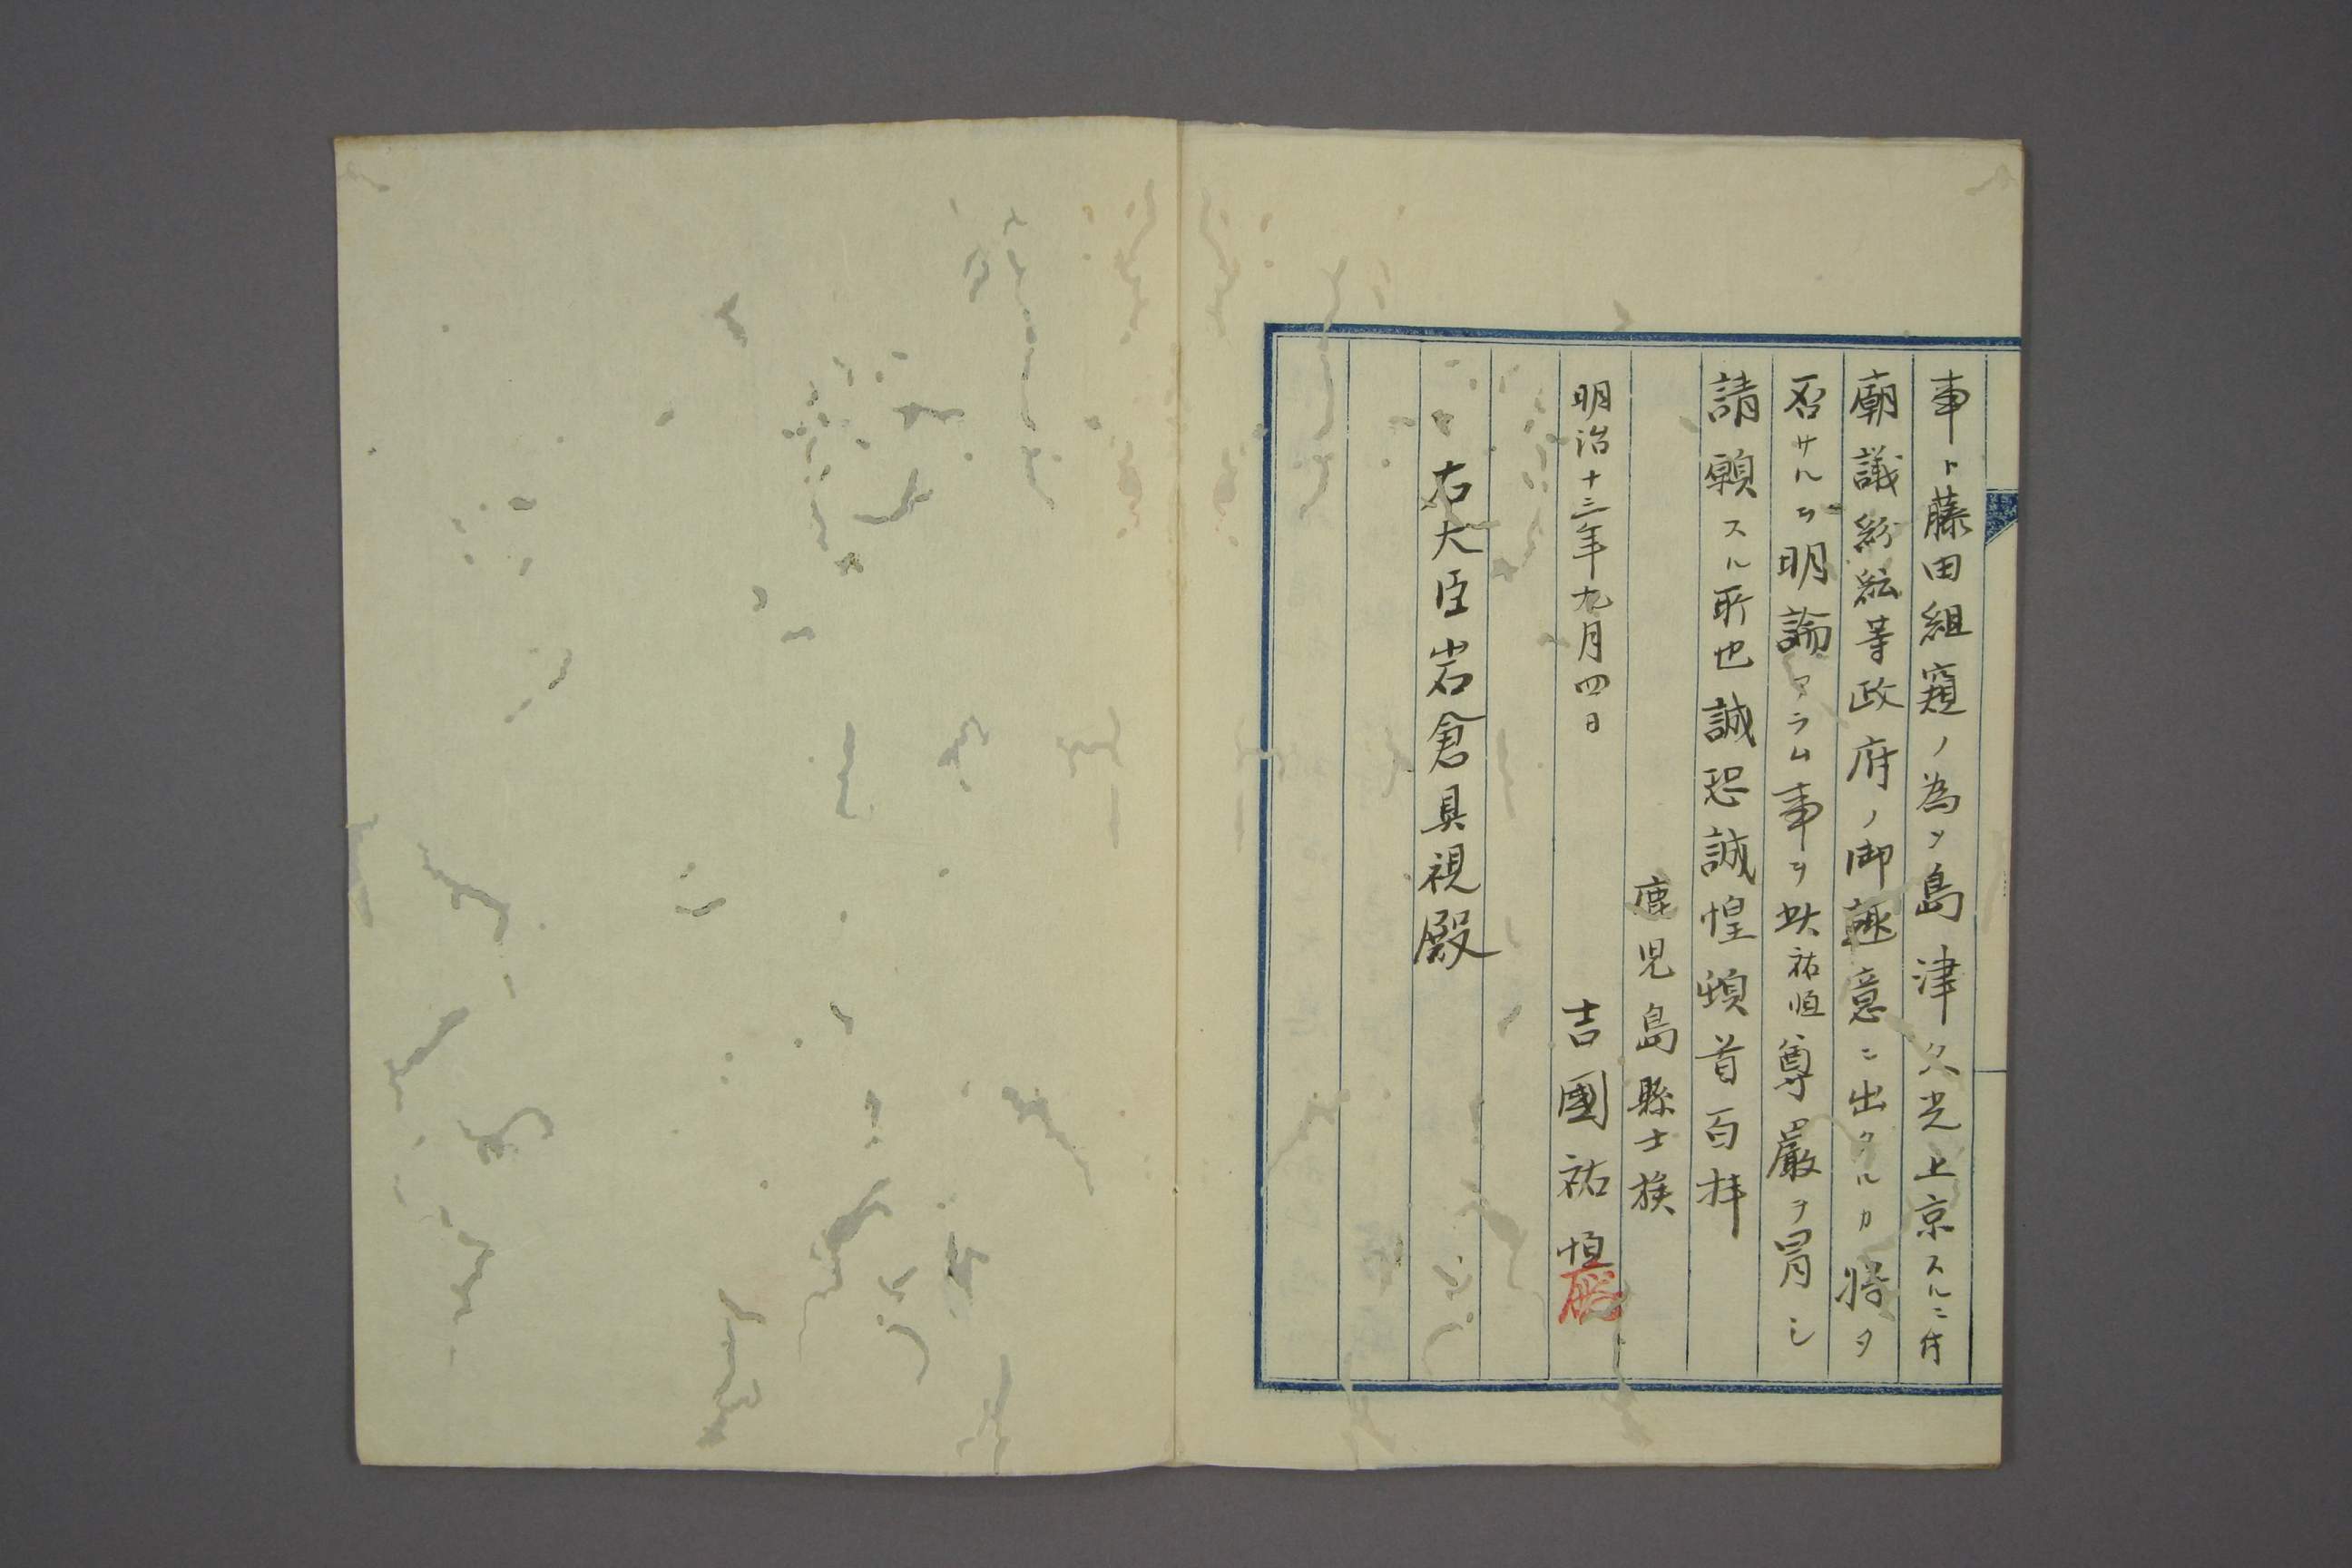 事ト藤田組窺ノ為メ島津久光上京スルニ付
廟議紛紜等政府ノ御趣意ニ出タルカ将タ
否サルヲ明諭アラム事ヲ此祐恒尊嚴ヲ冒シ
請願スル所也誠恐誠惶頓首百拝
鹿児島縣士族
明治十三年九月四日 吉國祐恒
右大臣岩倉具視殿